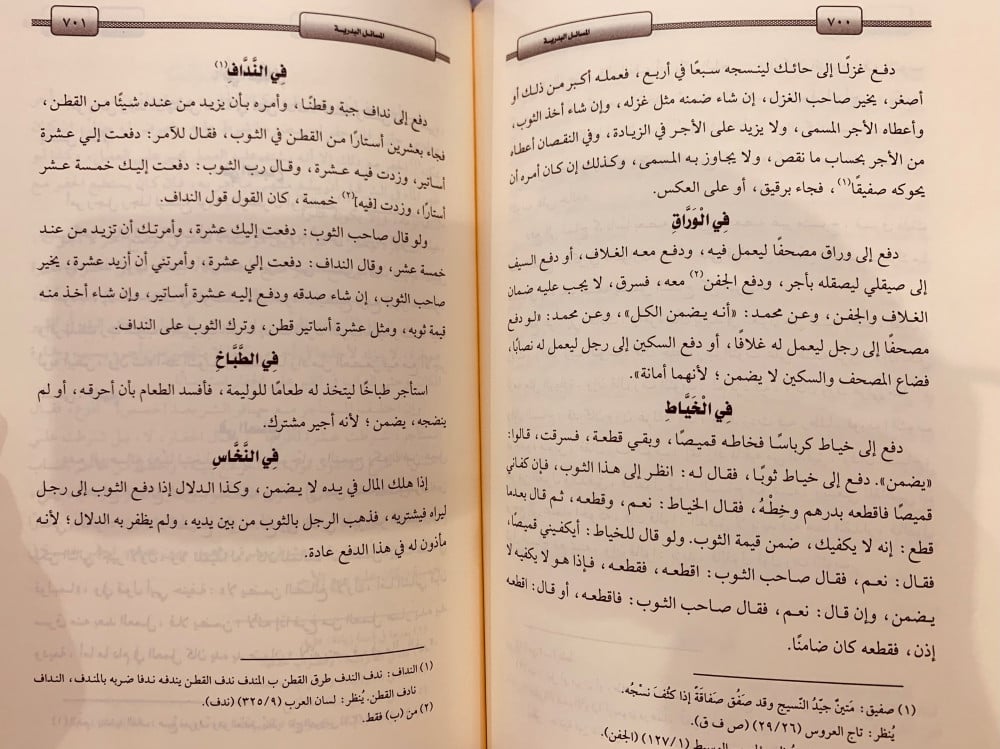 ٧٠٠
المسائل البدرية
دفع غزلًا إلى حائك لينسجه سبعًا في أربع، فعمله أكبر من ذلك أو
أصغر، يخير صاحب الغزل، إن شاء ضمنه مثل غزله، وإن شاء أخذ الثوب،
وأعطاه الأجر المسمى، ولا يزيد على الأجر في الزيادة، وفي النقصان أعطاه
من الأجر بحساب ما نقص، ولا يجاوز به المسمى، وكذلك إن كان أمره أن
يحوكه صفيقًا(١)، فجاء برقيق، أو على العكس.
فِي الْوَرَّاقِ
دفع إلى وراق مصحفًا ليعمل فيه، ودفع معه الغلاف، أو دفع السيف
إلى صيقلي ليصقله بأجر، ودفع الجفن(٢) معه، فسرق، لا يجب عليه ضمان
الغلاف والجفن، وعن محمد: «أنه يضمن الكل»، وعن محمد: «لو دفع
مصحفًا إلى رجل ليعمل له غلافًا، أو دفع السكين إلى رجل ليعمل له نصابًا،
فضاع المصحف والسكين لا يضمن؛ لأنهما أمانة».
فِي الْخَيَّاطِ
دفع إلى خياط كرباسًا فخاطه قميصًا، وبقي قطعة، فسرقت، قالوا:
«يضمن». دفع إلى خياط ثوبًا، فقال له: انظر إلى هذا الثوب، فإن كفاني
قميصًا فاقطعه بدرهم وخِطْهُ، فقال الخياط: نعم، وقطعه، ثم قال بعدما
قطع: إنه لا يكفيك، ضمن قيمة الثوب. ولو قال للخياط: أيكفيني قميصًا،
فقال: نعم، فقال صاحب الثوب: اقطعه، فقطعه، فإذا هو لا يكفيه لا
يضمن، وإن قال: نعم، فقال صاحب الثوب: فاقطعه، أو قال: اقطعه
إذن، فقطعه كان ضامنًا.
(١) صفيق: مَتينٌ جيّدُ النّسيج وقد صَفُق صَفاقَةً إذا كَثُف نسْجُه.
يُنظر: تاج العروس (٢٩/٢٦) (ص ف ق).
الوسيط (١٢٧/١) (الجفن).
المسائل البدرية
٧٠١
فِي النَّدَّافِ(١)
دفع إلى نداف جبة وقطنًا، وأمره بأن يزيد من عنده شيئًا من القطن،
فجاء بعشرين أستارًا من القطن في الثوب، فقال للآمر: دفعت إلي عشرة
أساتير، وزدت فيه عشرة، وقال رب الثوب: دفعت إليك خمسة عشر
أستارًا، وزدت [فيه](٢) خمسة، كان القول قول النداف.
ولو قال صاحب الثوب: دفعت إليك عشرة، وأمرتك أن تزيد من عند
خمسة عشر، وقال النداف: دفعت إلي عشرة، وأمرتني أن أزيد عشرة، يخير
صاحب الثوب، إن شاء صدقه ودفع إليه عشرة أساتير، وإن شاء أخذ منه
قيمة ثوبه، ومثل عشرة أساتير قطن، وترك الثوب على النداف.
فِي الطَّبَّاخِ
استأجر طباخًا ليتخذ له طعامًا للوليمة، فأفسد الطعام بأن أحرقه، أو لم
ينضجه، يضمن؛ لأنه أجير مشترك.
فِي النَّخَّاسِ
إذا هلك المال في يده لا يضمن، وكذا الدلال إذا دفع الثوب إلى رجل
ليراه فيشتريه، فذهب الرجل بالثوب من بين يديه، ولم يظفر به الدلال؛ لأنه
مأذون له في هذا الدفع عادة.
(١) النداف: ندف الندف طرق القطن ب المندف ندف القطن يندفه ندفا ضربه بالمندف، النداف
نادف القطن. يُنظر: لسان العرب (٣٢٥/٩) (ندف).
(٢) من (ب) فقط.